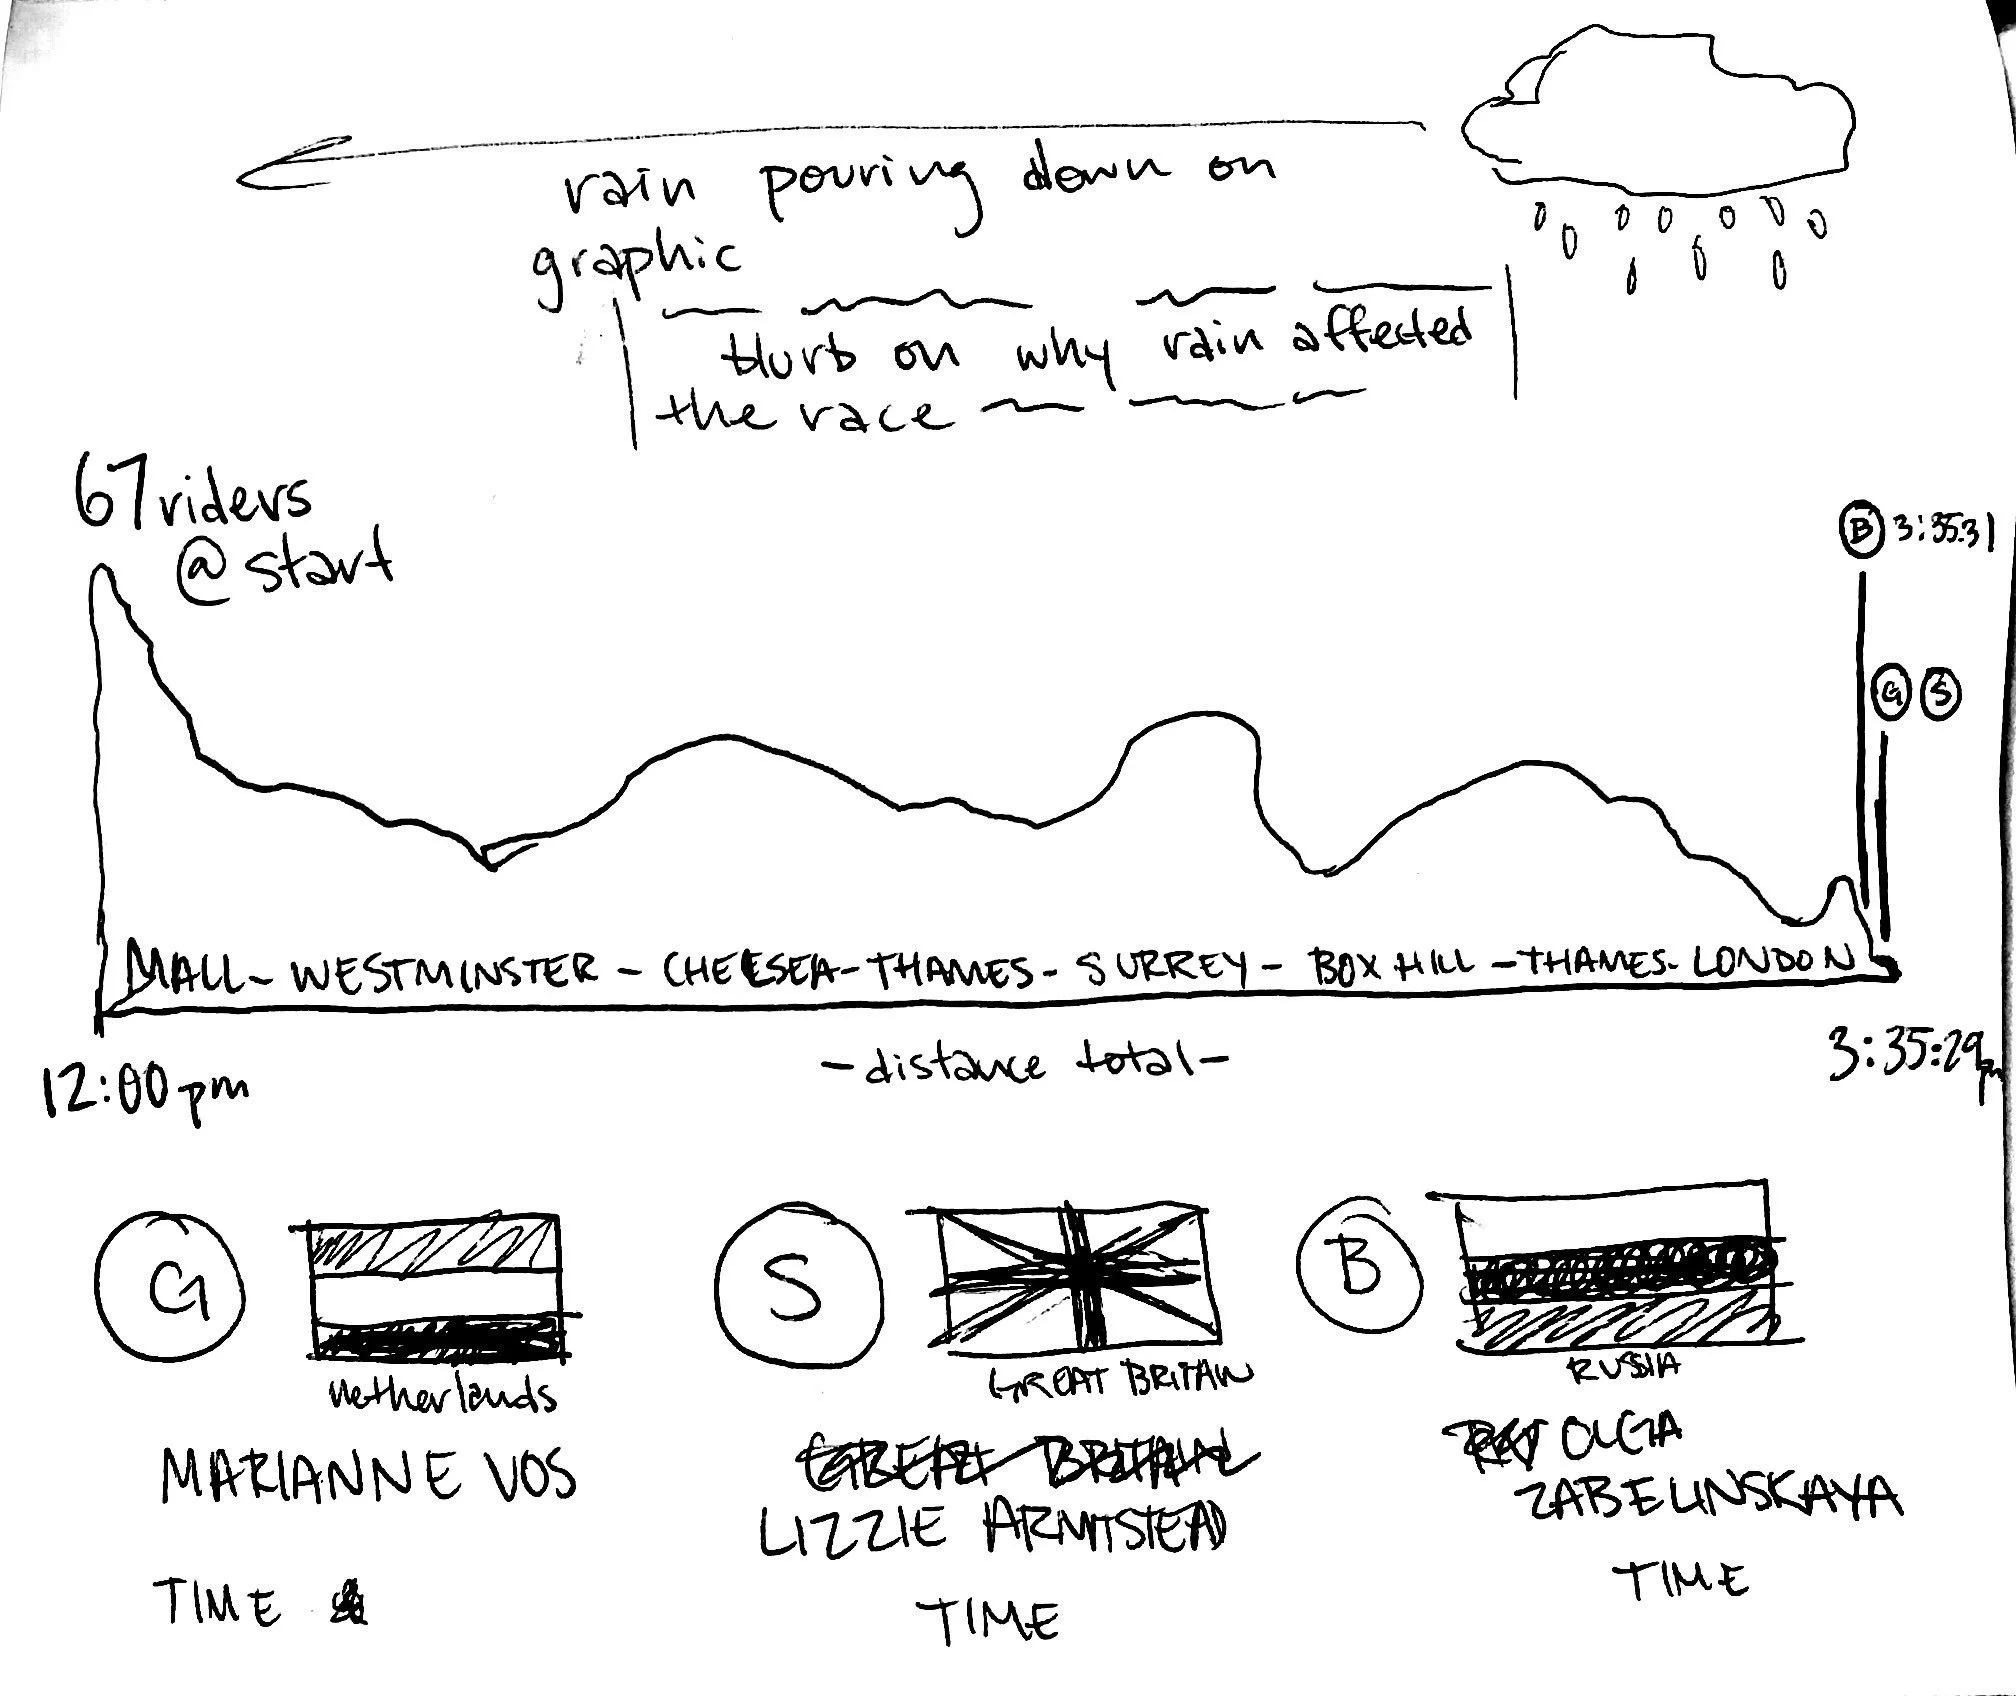 rain pouring down on
graphic
blurb on why rain affected
the race
67 riders
@ start
B 3:35:31
G S
MALL - WESTMINSTER - CHELSEA - THAMES - SURREY - BOX HILL - THAMES - LONDON
12:00 pm
- distance total -
3:35:29pm
G
S
B
Netherlands
GREAT BRITAIN
RUSSIA
MARIANNE VOS
GREAT BRITAIN
LIZZIE ARMITSTEAD
OLGA
ZABELINSKAYA
TIME
TIME
TIME